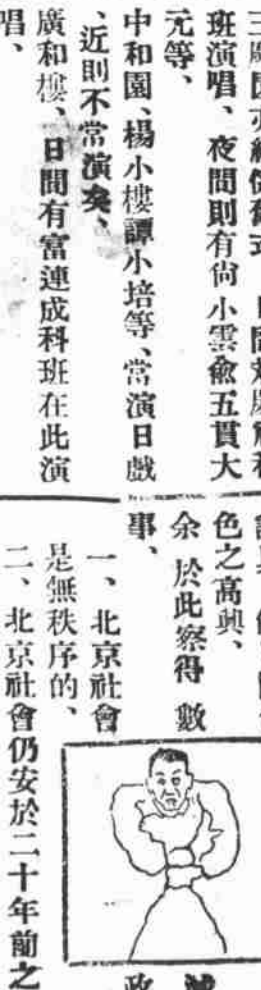 班演唱、夜間則有尙小雲兪五貫大
元等、
中和園、楊小樓譚小培等、常演日戲
、近則不常演奏、
廣和樓、日間有富連成科班在此演
唱、
色之高興、
余於此察得數
事、
一、北京社會
是無秩序的、
二、北京社會仍安於二十年前之
政